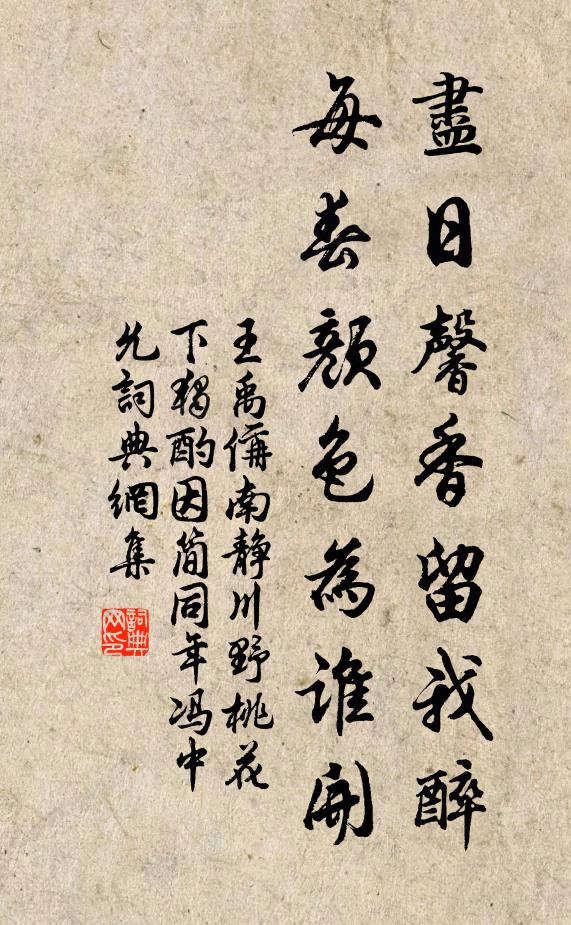 盡日馨香留我醉
每春顏色為誰開
王禹偁南静川野桃花
下獨酌因简同年冯中
允詞典網集
詞典
网印